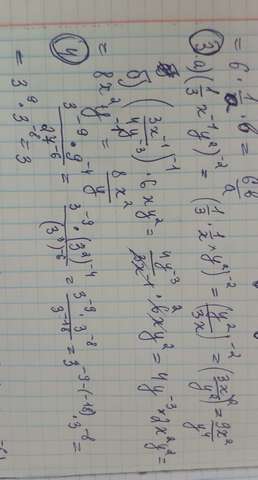 = 6 · 1/a · b = 6b/a
③ а) (1/3 x⁻¹y²)⁻² = (1/3 · 1/x · y²)⁻² = (y²/3x)⁻² = (3x/y²)² = 9x²/y⁴
б) (3x⁻¹/4y⁻³)⁻¹ · 6xy² = 4y⁻³/3x⁻¹ · 6xy² = 4y⁻³ · 2x²y² =
= 8x²y⁻¹ = 8x²/y
④ 3⁻⁹ · 9⁻⁴/27⁻⁶ = 3⁻⁹ · (3²)⁻⁴/(3³)⁻⁶ = 3⁻⁹ · 3⁻⁸/3⁻¹⁸ = 3⁻⁹⁻⁽⁻¹⁸⁾ · 3⁻⁸ =
= 3⁹ · 3⁻⁸ = 3